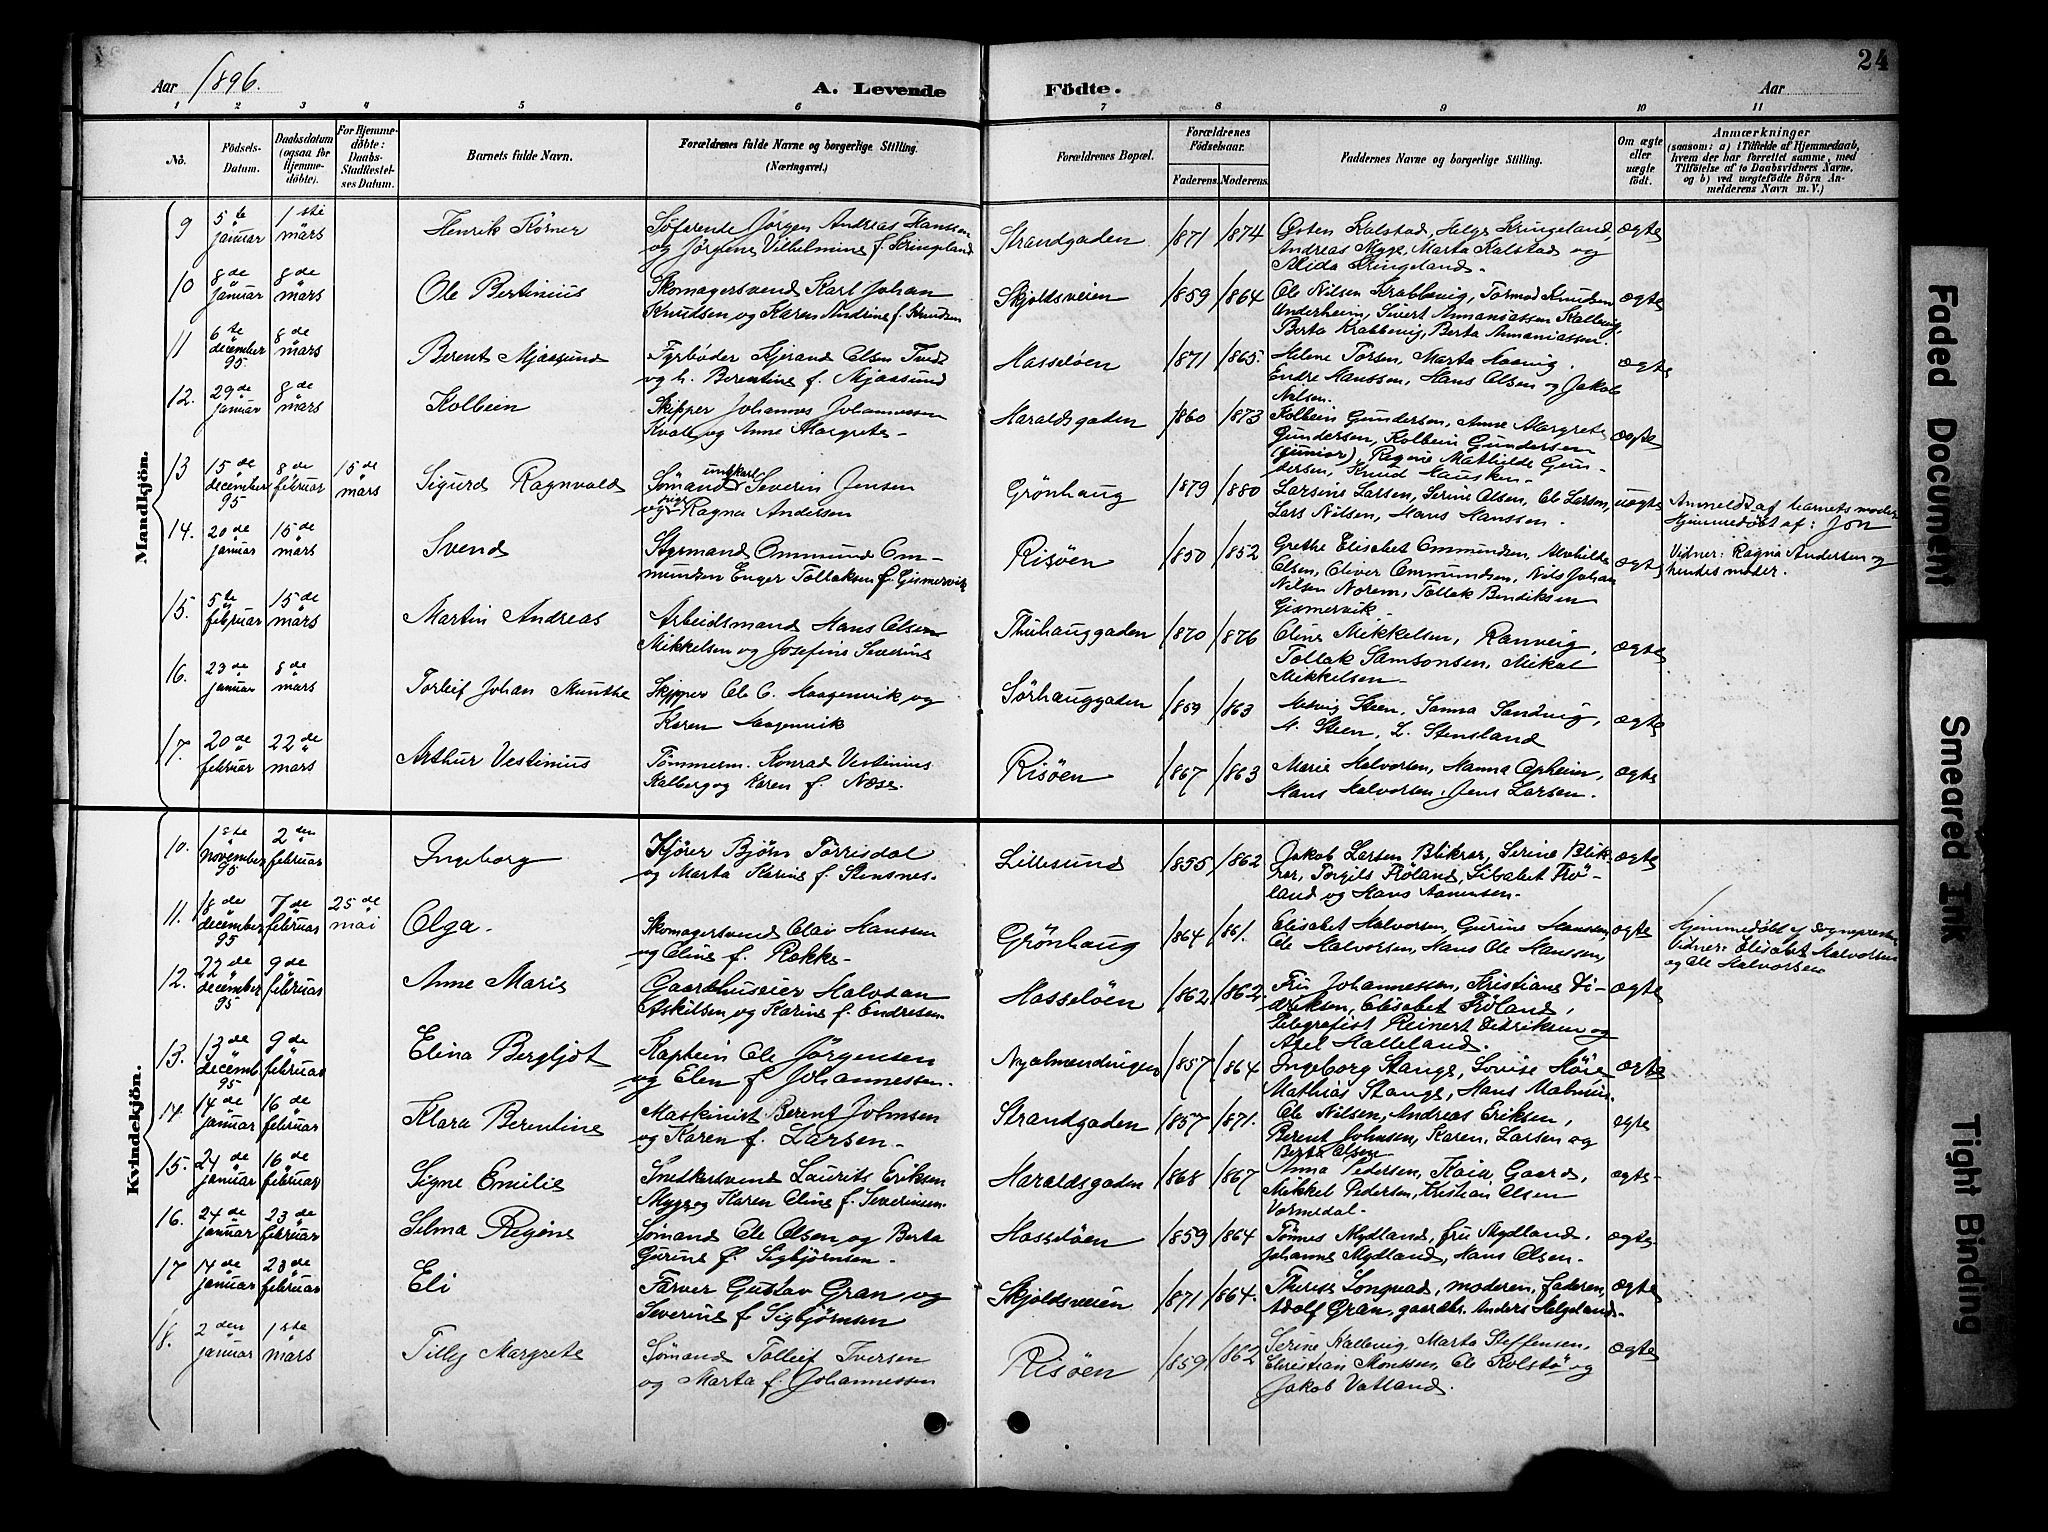 24
Aar 1896.
A. Levende Födte.
Aar
1 2 3 4 5 6 7 8 9 10 11
No.
Födsels-Datum.
Daabsdatum (ogsaa for Hjemme-döbte).
For Hjemme-döbte: Daabs-Stadfæstel-ses Datum.
Barnets fulde Navn.
Forældrenes fulde Navne og borgerlige Stilling. (Næringsvei.)
Forældrenes Bopæl.
Forældrenes Födselsaar.
Faderens. Moderens.
Faddernes Navne og borgerlige Stilling.
Om ægte eller uægte födt.
Anmærkninger
(saasom: a) i Tilfælde af Hjemmedaab,
hvem der har forrettet samme, med
Tilföielse af to Daabsvidners Navne,
og b) ved uægtefödte Börn An-
melderens Navn m. V.)
Mandkjön.
9 5te januar 1ste mars Henrik Körner
Söferende Jörgen Andreas Hanssen
og Jörgine Vilhelmine f. Kringeland
Strandgaden 1871 1874
Østen Kalstad, Helge Kringeland,
Andreas Myge, Marta Kalstad og
Alida Kringeland.
ægte
10 8de januar 8de mars Ole Bertinius
Skomagersvend Karl Johan
Knudsen og Karen Andrine f. Knudsen
Skjoldsveien 1859 1864
Ole Nilsen Krabbevig, Tormod Knudsen
Anderheim, Sivert Annaniassen Kallevig,
Berta Krabbevig, Berta Annaniassen.
ægte
11 6te december 95 8de mars Berent Mjaasund
Fyrböder Hjerand Olsen Tved
og h. Berentine f. Mjaasund
Hasselöen 1871 1865
Helene Torsen, Marta Haavig,
Endre Hanssen, Hans Olsen og Jakob
Nilsen.
ægte
12. 29de januar 8de mars Kolbein
Skipper Johannes Johannessen
Kvale og Anne Margrete
Haraldsgaden 1860 1873
Kolbein Gundersen, Anne Margrete
Gundersen, Kolbein Gundersen
(junior), Ragna Mathilde Gun-
dersen, Knud Hausken
ægte
13 15de december 95 8de februar 15de mars Sigurd Ragnvald
Sömand ungkarl Severin Jensen
og pige Ragna Andersen
Grönhaug 1879 1880
Larsine Larsen, Serine Olsen, Ole Larsen,
Lars Nilsen, Hans Hanssen.
uægte
Anmeldt af barnets moder
Hjemmedöbt af: Jon
Vidner: Ragna Andersen og
hendes moder.
14. 20de januar 15de mars Svend
Styrmand Ommund Om-
mundsen Enger Tollaksen f. Gismervik
Risöen 1850 1852
Grethe Elisabet Ommundsen, Alvhilde
Olsen, Oliver Ommundsen, Nils Johan
Nilsen Norem, Tollak Bendiksen
Gismervik.
ægte
15. 5te februar 15de mars Martin Andreas
Arbeidsmand Hans Olsen
Mikkelsen og Josefine Severine
Thuhauggaden 1870 1876
Oline Mikkelsen, Ranveig,
Tollak Samsonsen, Mikal
Mikkelsen.
ægte
16. 23de januar 8de mars Torleif Johan Munthe
Skipper Ole C. Haagenvik og
Karen Haagenvik
Sörhauggaden 1859 1863
Helvig Steen, Sanna Sandvig,
N. Steen, L. Stensland
ægte
17. 20de februar 22de mars Arthur Vestinius
Tömmerm. Konrad Vestinius
Kalberg og Karen f. Næse.
Risöen 1867 1863
Marie Halvorsen, Hanna Opheim,
Hans Halvorsen, Jens Larsen.
ægte
Kvindekjön.
10. 1ste november 95 2den februar Ingeborg
Kjörer Björn Torrisdal
og Marta Karine f. Stensnes.
Lillesund 1855 1862
Jakob Larsen Blikrar, Serine Blik-
rar, Torgils Fröland, Lisabet Frö-
land og Hans Aanensen.
ægte
11. 18de december 95 7de februar 25de mai Olga.
Skomagersvend Olai Hanssen
og Oline f. Rokke
Grönhaug 1864 1861.
Elisabet Halvorsen, Gurine Hansen,
Ole Halvorsen, Hans Ole Hanssen,
ægte
Hjemmedöbt af Sognepresten
Vidner: Elisabet Halvorsen
og Ole Halvorsen
12. 22de december 95 9de februar Anne Marie
Gaardhuseier Halvdan
Askilsen og Karine f. Endresen.
Hasselöen 1862 1862.
Fru Johannessen, Kristiane Di-
driksen, Elisabet Fröland,
Telegrafist Reinert Didriksen og
Axel Halleland.
ægte
13. 13de decemb. 95 9de februar Elina Bergljot
Kaptein Ole Jörgensen
og Elen f. Johannessen.
Nyalmendingen 1857 1864
Ingeborg Stange, Lovise Höie
Mathias Stange, Hans Malmin.
ægte
14 14de januar 16de februar Klara Berentine
Maskinist Berent Johnsen
og Karen f. Larsen.
Strandgaden 1857 1871.
Ole Nilsen, Andreas Eriksen,
Berent Johnsen, Karen Larsen og
Berta Olsen
ægte
15. 24de januar 16de februar Signe Emilie
Snedkersvend Laurits Eriksen
Myge og Karen Oline f. Severinsen.
Haraldsgaden 1868 1867
Anna Pedersen, Kaia Gaard,
Mikkel Pedersen, Kristian Olsen
Vormedal.
ægte
16. 24de januar 23de februar Selma Regine
Sömand Ole Olsen og Berta
Gurine f. Sigbjörnsen.
Hasselöen 1859 1864
Tönnes Mydland, fru Mydland,
Johannes Mydland, Hans Olsen.
ægte
17 14de januar 23de februar Eli
Farver Gustav Gran og
Severine f. Sigbjörnsen
Skjoldsveien 1871 1864.
Therese Lonquad, moderen, faderen,
Adolf Gran, gaardbr. Anders Helgeland.
ægte
18. 2den januar 1ste mars Tilly Margrete
Sömand Tolleif Iversen
og Marta f. Johannessen
Risöen 1859 1862
Serine Kallevig, Marta Steffensen,
Christian Monssen, Ole Rolstö og
Jakob Vatland.
ægte
Faded Document
Smeared Ink
Tight Binding